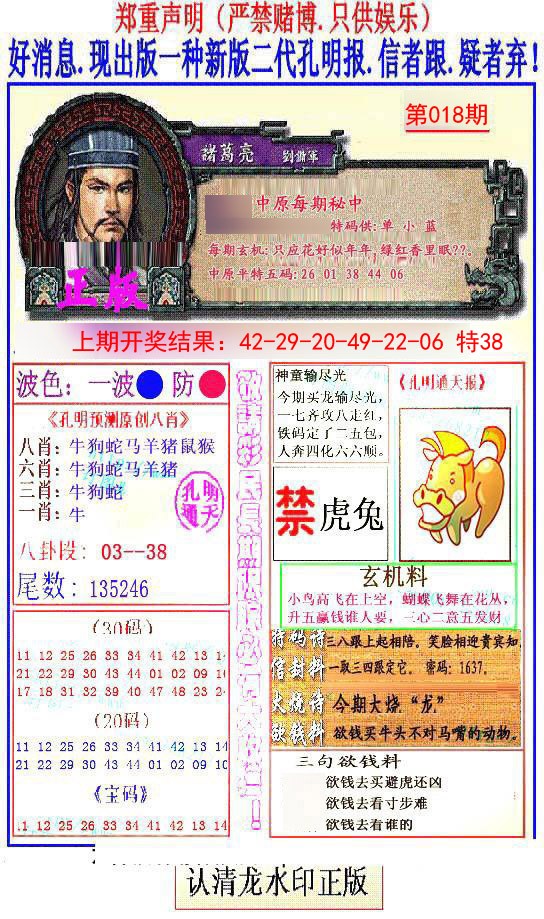 郑重声明（严禁赌博.只供娱乐）
好消息.现出版一种新版二代孔明报.信者跟.疑者弃!
第018期
諸葛亮 劉備軍
中原每期秘中
特码供:单 小 蓝
每期玄机:只应花好似年年,绿红香里眠??。
中原平特五码:26 01 38 44 06
正版
上期开奖结果：42-29-20-49-22-06 特38
波色：一波 防
《孔明预测原创八肖》
八肖：牛狗蛇马羊猪鼠猴
六肖：牛狗蛇马羊猪
三肖：牛狗蛇
一肖：牛
孔明通天
八卦段：03--38
尾数：135246
(30码)
11 12 25 26 33 34 41 42 13 14
21 22 29 30 43 44 01 02 09 10
17 18 31 32 39 40 47 48 23 24
(20码)
11 12 25 26 33 34 41 42 13 14
21 22 29 30 43 44 01 02 09 10
《宝码》
11 12 25 26 33 34 41 42 13 14
神童输尽光
今期买龙输尽光，
一七齐攻八走红，
铁码定了二五包，
人奔四化六六顺。
《孔明通天报》
禁 虎兔
玄机料
小鸟高飞在上空，蝴蝶飞舞在花丛，
升五赢钱谁人要，三心二意五发财。
特码诗 三八跟上起相陪。笑脸相迎贵宾知，
信封料 一取三四跟定它。密码：1637。
火烧诗 今期大烧“龙”
欲钱料 欲钱买牛头不对马嘴的动物。
三句欲钱料
欲钱去买避虎还凶
欲钱去看寸步难
欲钱去看谁的
认清龙水印正版